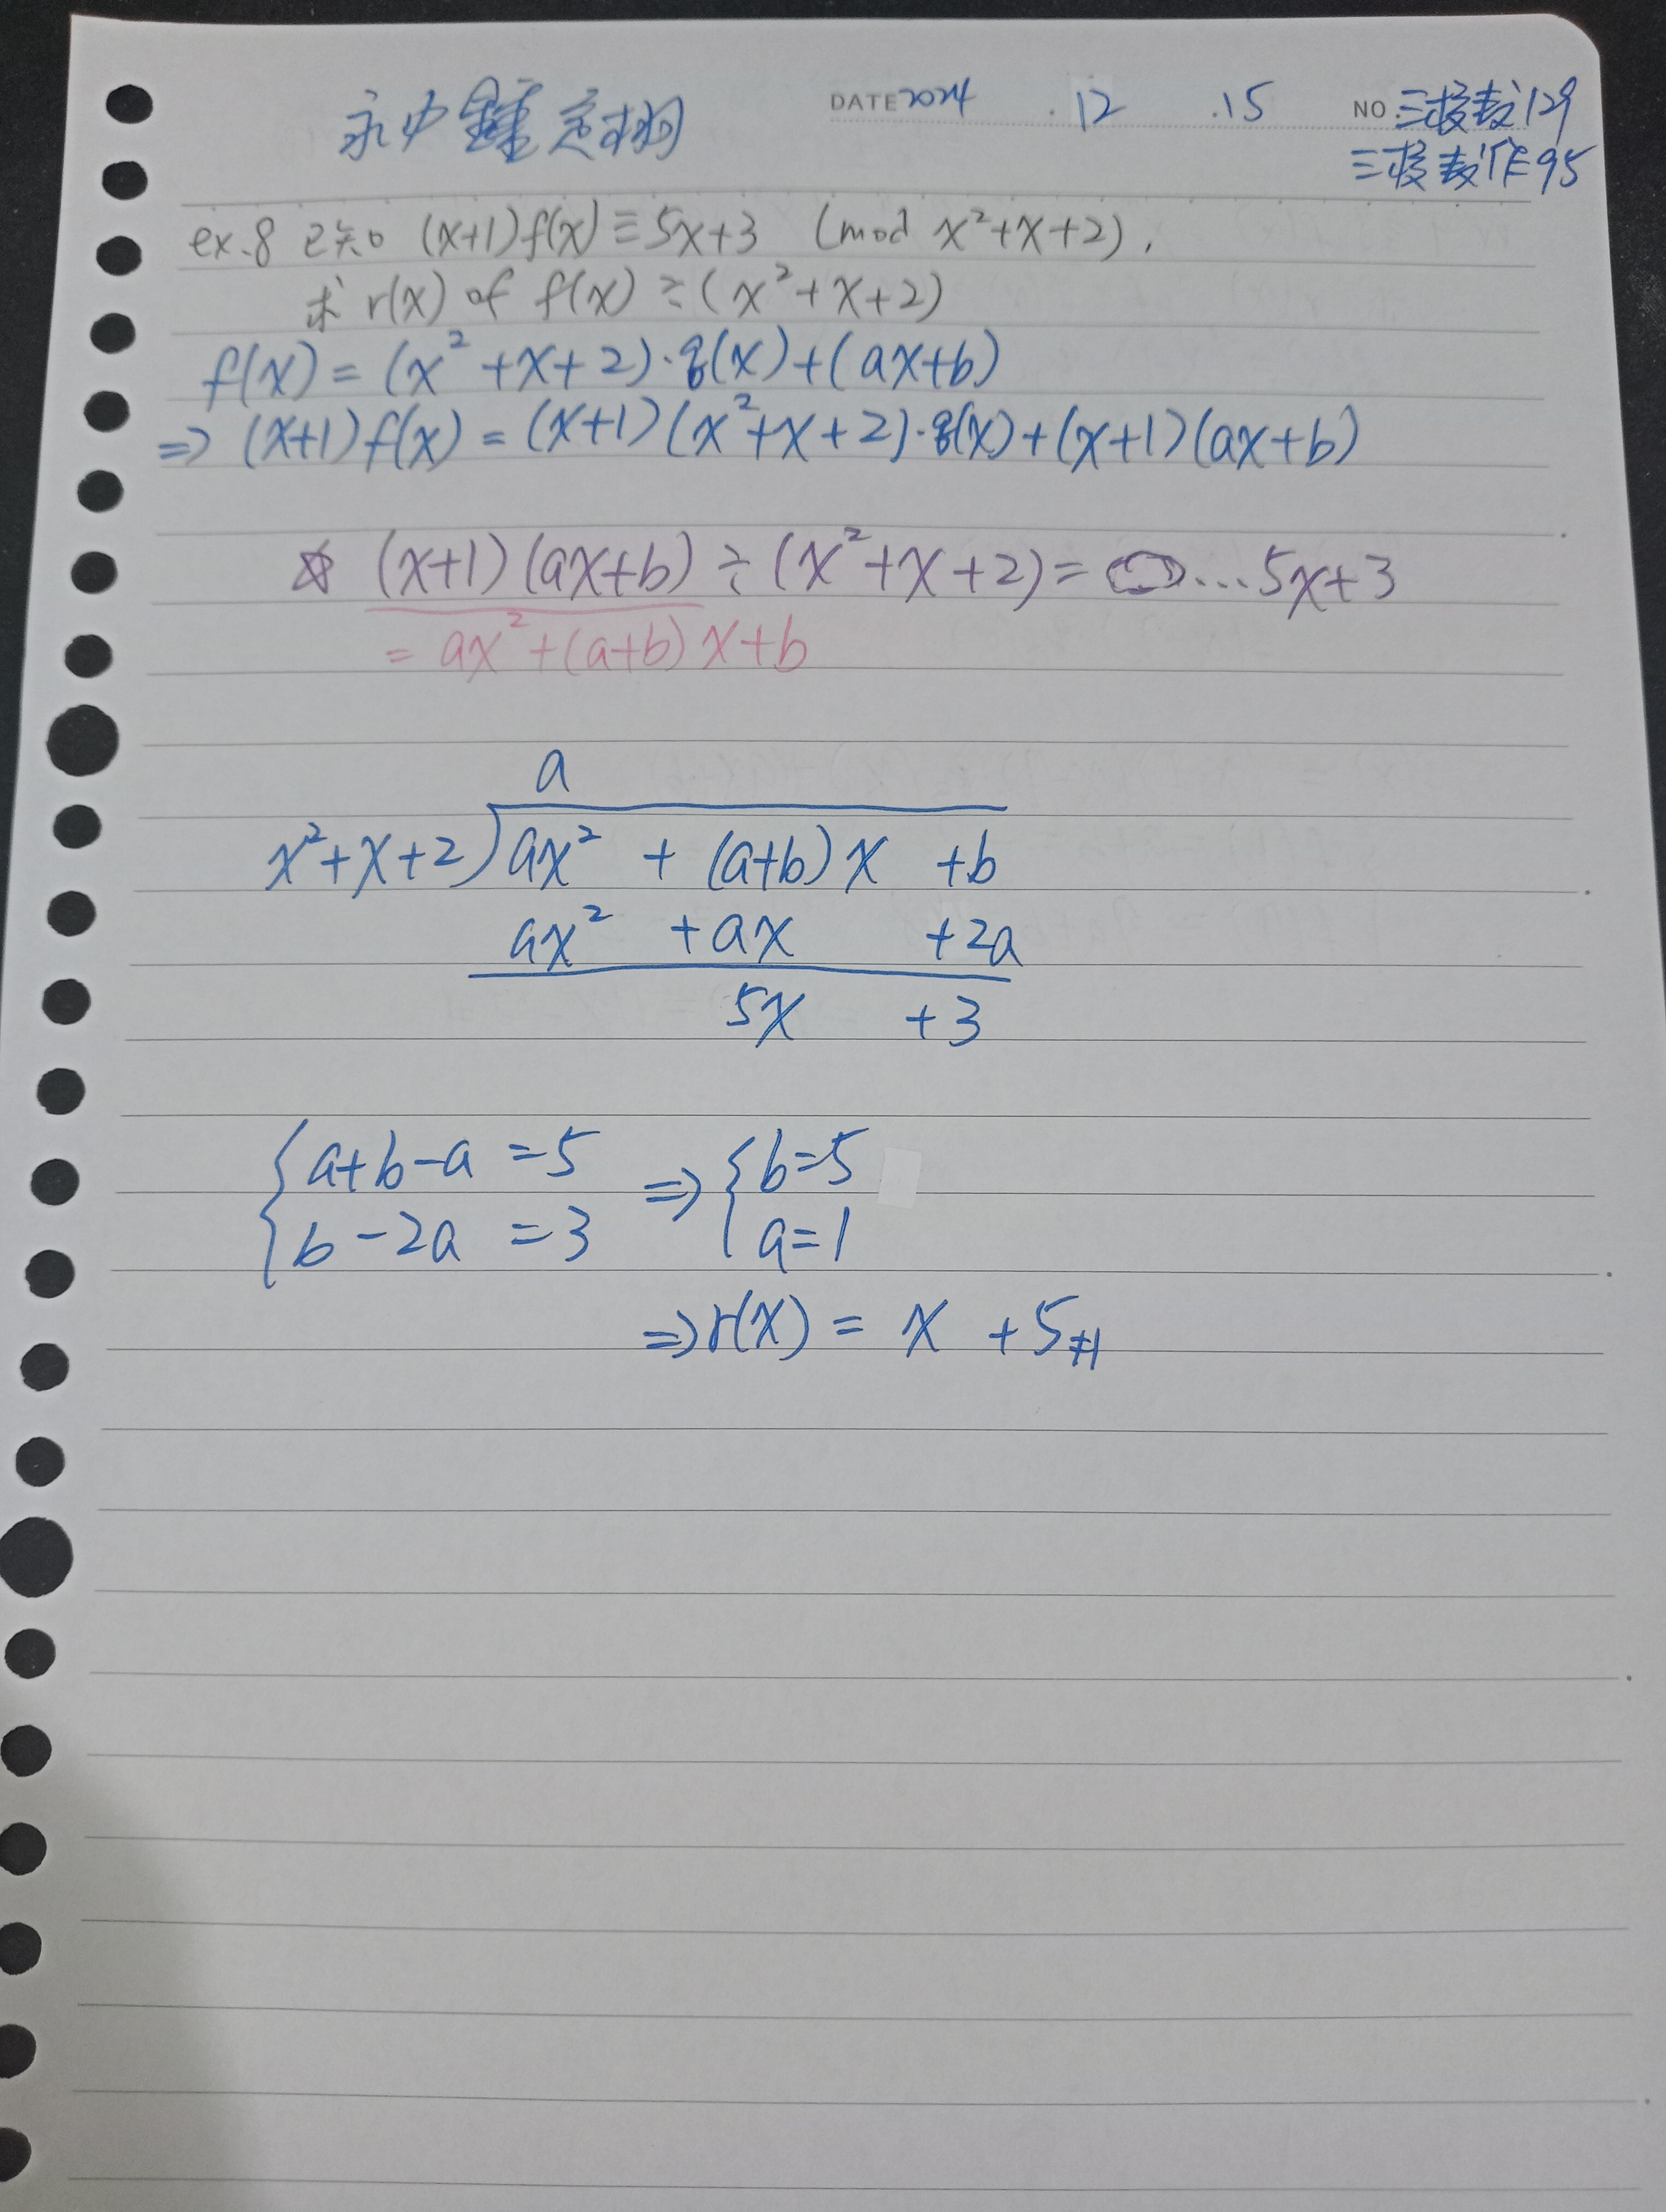 永中鍾
DATE 2024 . 12 . 15
NO. 三 129
三 95
ex.8 已知 (x+1)f(x)≡5x+3 (mod x²+x+2),
求 r(x) of f(x)÷(x²+x+2)
f(x) = (x²+x+2)·q(x)+(ax+b)
⇒ (x+1)f(x) = (x+1)(x²+x+2)·q(x)+(x+1)(ax+b)
☆ (x+1)(ax+b)÷(x²+x+2)= ⋯5x+3
= ax²+(a+b)x+b
a
x²+x+2)ax² + (a+b)x +b
ax² +ax +2a
5x +3
{a+b-a =5 ⇒ {b=5
b-2a =3 a=1
⇒r(x) = x +5#